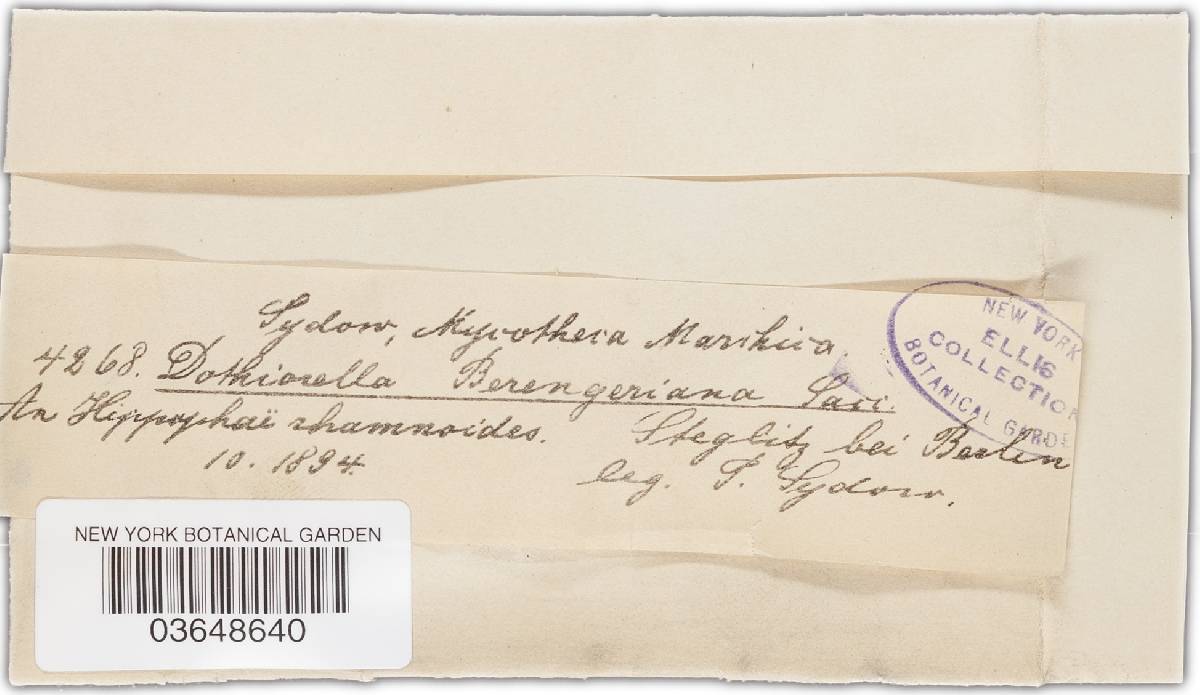 Sydow, Mycotheca Marchica
4268. Dothiorella Berengeriana Sacc.
An Hippophaë rhamnoides. Steglitz bei Berlin
10. 1894. leg. P. Sydow.
NEW YORK
ELLIS
COLLECTION
BOTANICAL GARDE
NEW YORK BOTANICAL GARDEN
03648640